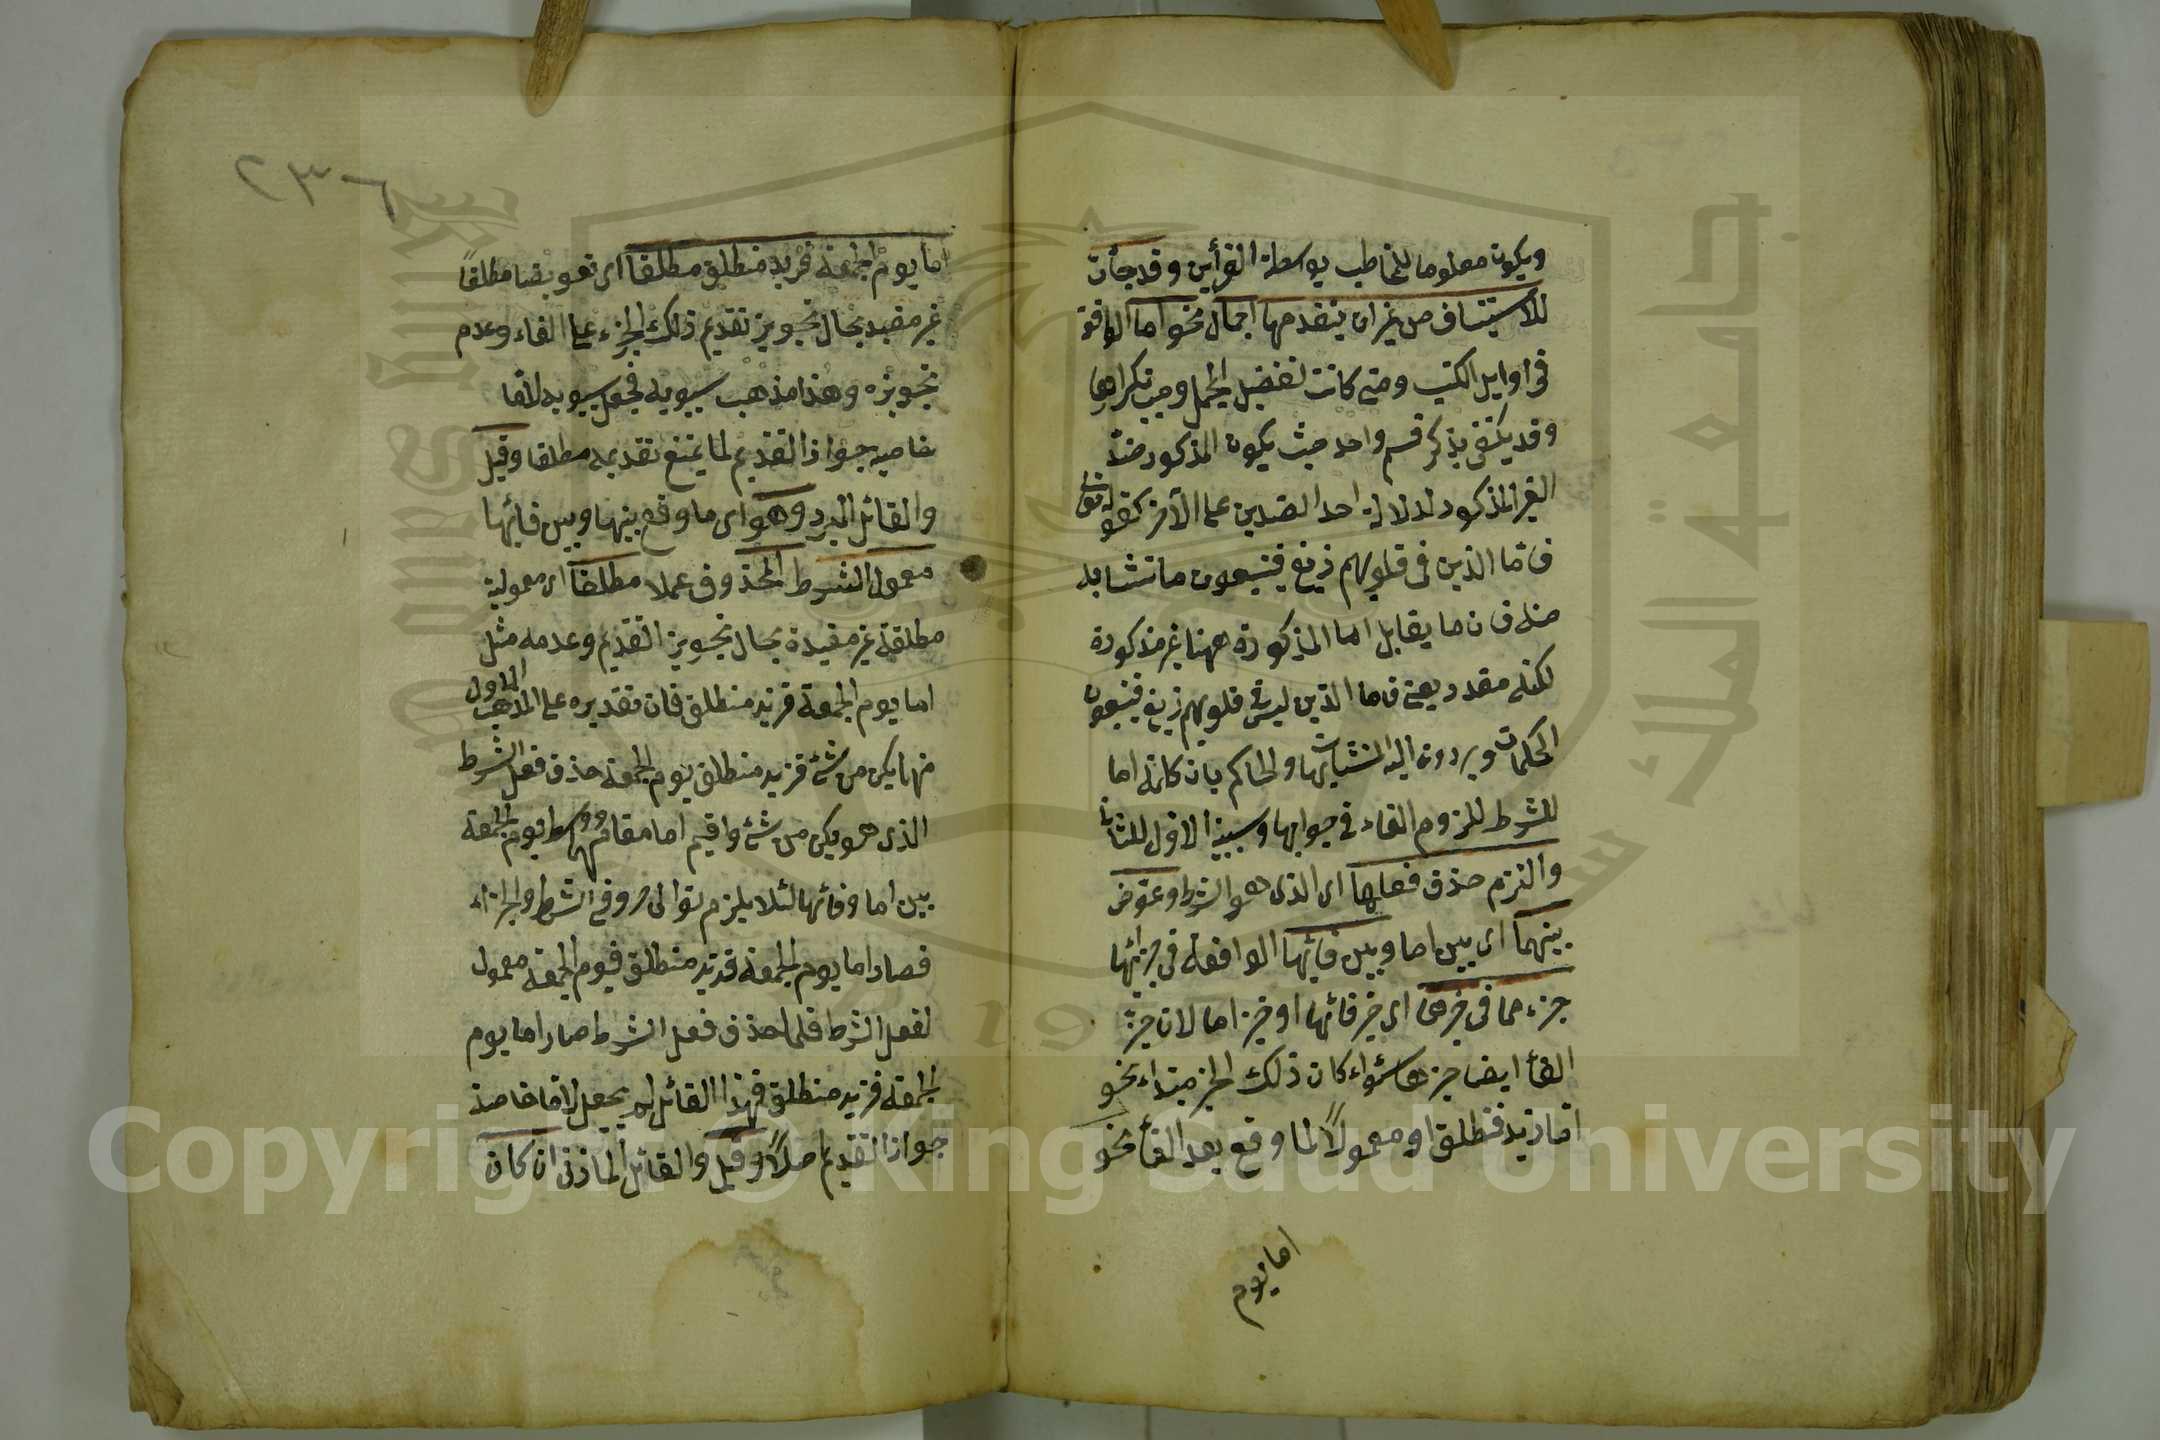 ويكون معلوما للمخاطب بواسطة القرأين وقد جأت
للاستيناف من غير ان يتقدمها اجمال نحو اما الواقع
فى اوايل الكتب ومتى كانت لتفصيل المجمل وجب تكرارها
وقد يكتفى بذكر قسم واحد حيث يكون المذكور ضد
الغير المذكور لدلالة احد الضدين على الآخر كقوله تعالى
فاما الذين فى قلوبهم زيغ فيتبعون ما تشابه
منه فان ما يقابل اما المذكورة ههنا غير مذكورة
لكنه مقدر يعنى فاما الذين ليس فى قلوبهم زيغ فيتبعون
المحكمات ويردون اليه المتشابهات والحاكم بان كلمة اما
للشرط للزوم الفاء فى جوابها وسببية الاول للثانى
والتزم حذف فعلها اى الذى هو الشرط وعوض
بينهما اى بين اما وبين فايها الواقعة فى جزائها
جزء مما فى خيزها اى خيز فائها او خيز اما لان خيز
الفأ ايضا خيزها سواء كان ذلك الجزء مبتداء نحو
اما زيد فمنطلق او معمولاً لما وقع بعد الفأ نحو
اما يوم
٢٣٦
اما يوم الجمعة فزيد منطلق مطلقاً اى تعويضا مطلقاً
غير مقيد بحال تجويز تقديم ذلك الجزء على الفاء وعدم
تجويزه وهذا مذهب سيبويه فجعل سيبويه لاما
خاصية جواز التقديم لما يمتنع تقديمه مطلقا وقيل
والقائل المبرد وهو اى ما وقع بينها وبين فائها
معمول الشرط المحذوف عملا مطلقا اى معمولية
مطلقة غير مقيدة بحال تجويز التقديم وعدمه مثل
اما يوم الجمعة فزيد منطلق فان تقديره على المذهب الاول
مهما يكن من شئ فزيد منطلق يوم الجمعة حذف فعل الشرط
الذى هو يكن من شئ واقيم اما مقام مهما ووسط يوم الجمعة
بين اما وفائها لئلا يلزم توالى حرفى الشرط والجزاء
فصار اما يوم الجمعة فزيد منطلق فيوم الجمعة معمول
لفعل الشرط فلما حذف فعل الشرط صار اما يوم
الجمعة فزيد منطلق فهذا القائل لم يجعل لاما خاصة
جواز التقديم اصلاً وقيل والقائل المازنى ان كان
جامعة الملك سعود
King Saud University
19
Copyright © King Saud University